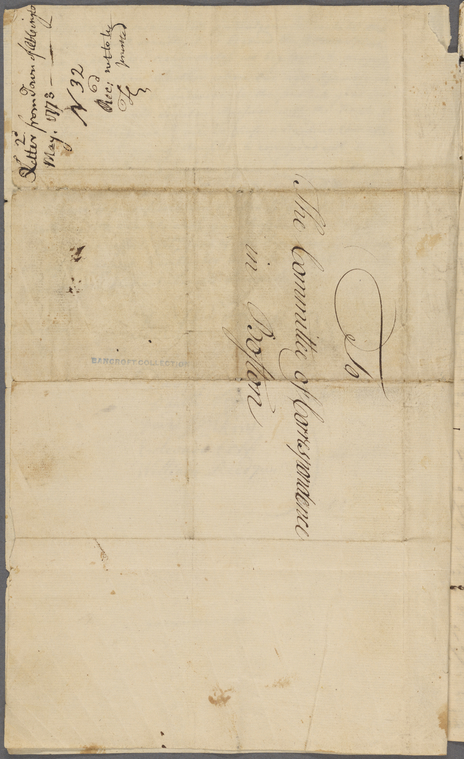 To
The Committee of Correspondence
in Boston
Letter from Town of Abington
May. 1773
N 32
Rec.d not to be
printed
BANCROFT COLLECTION